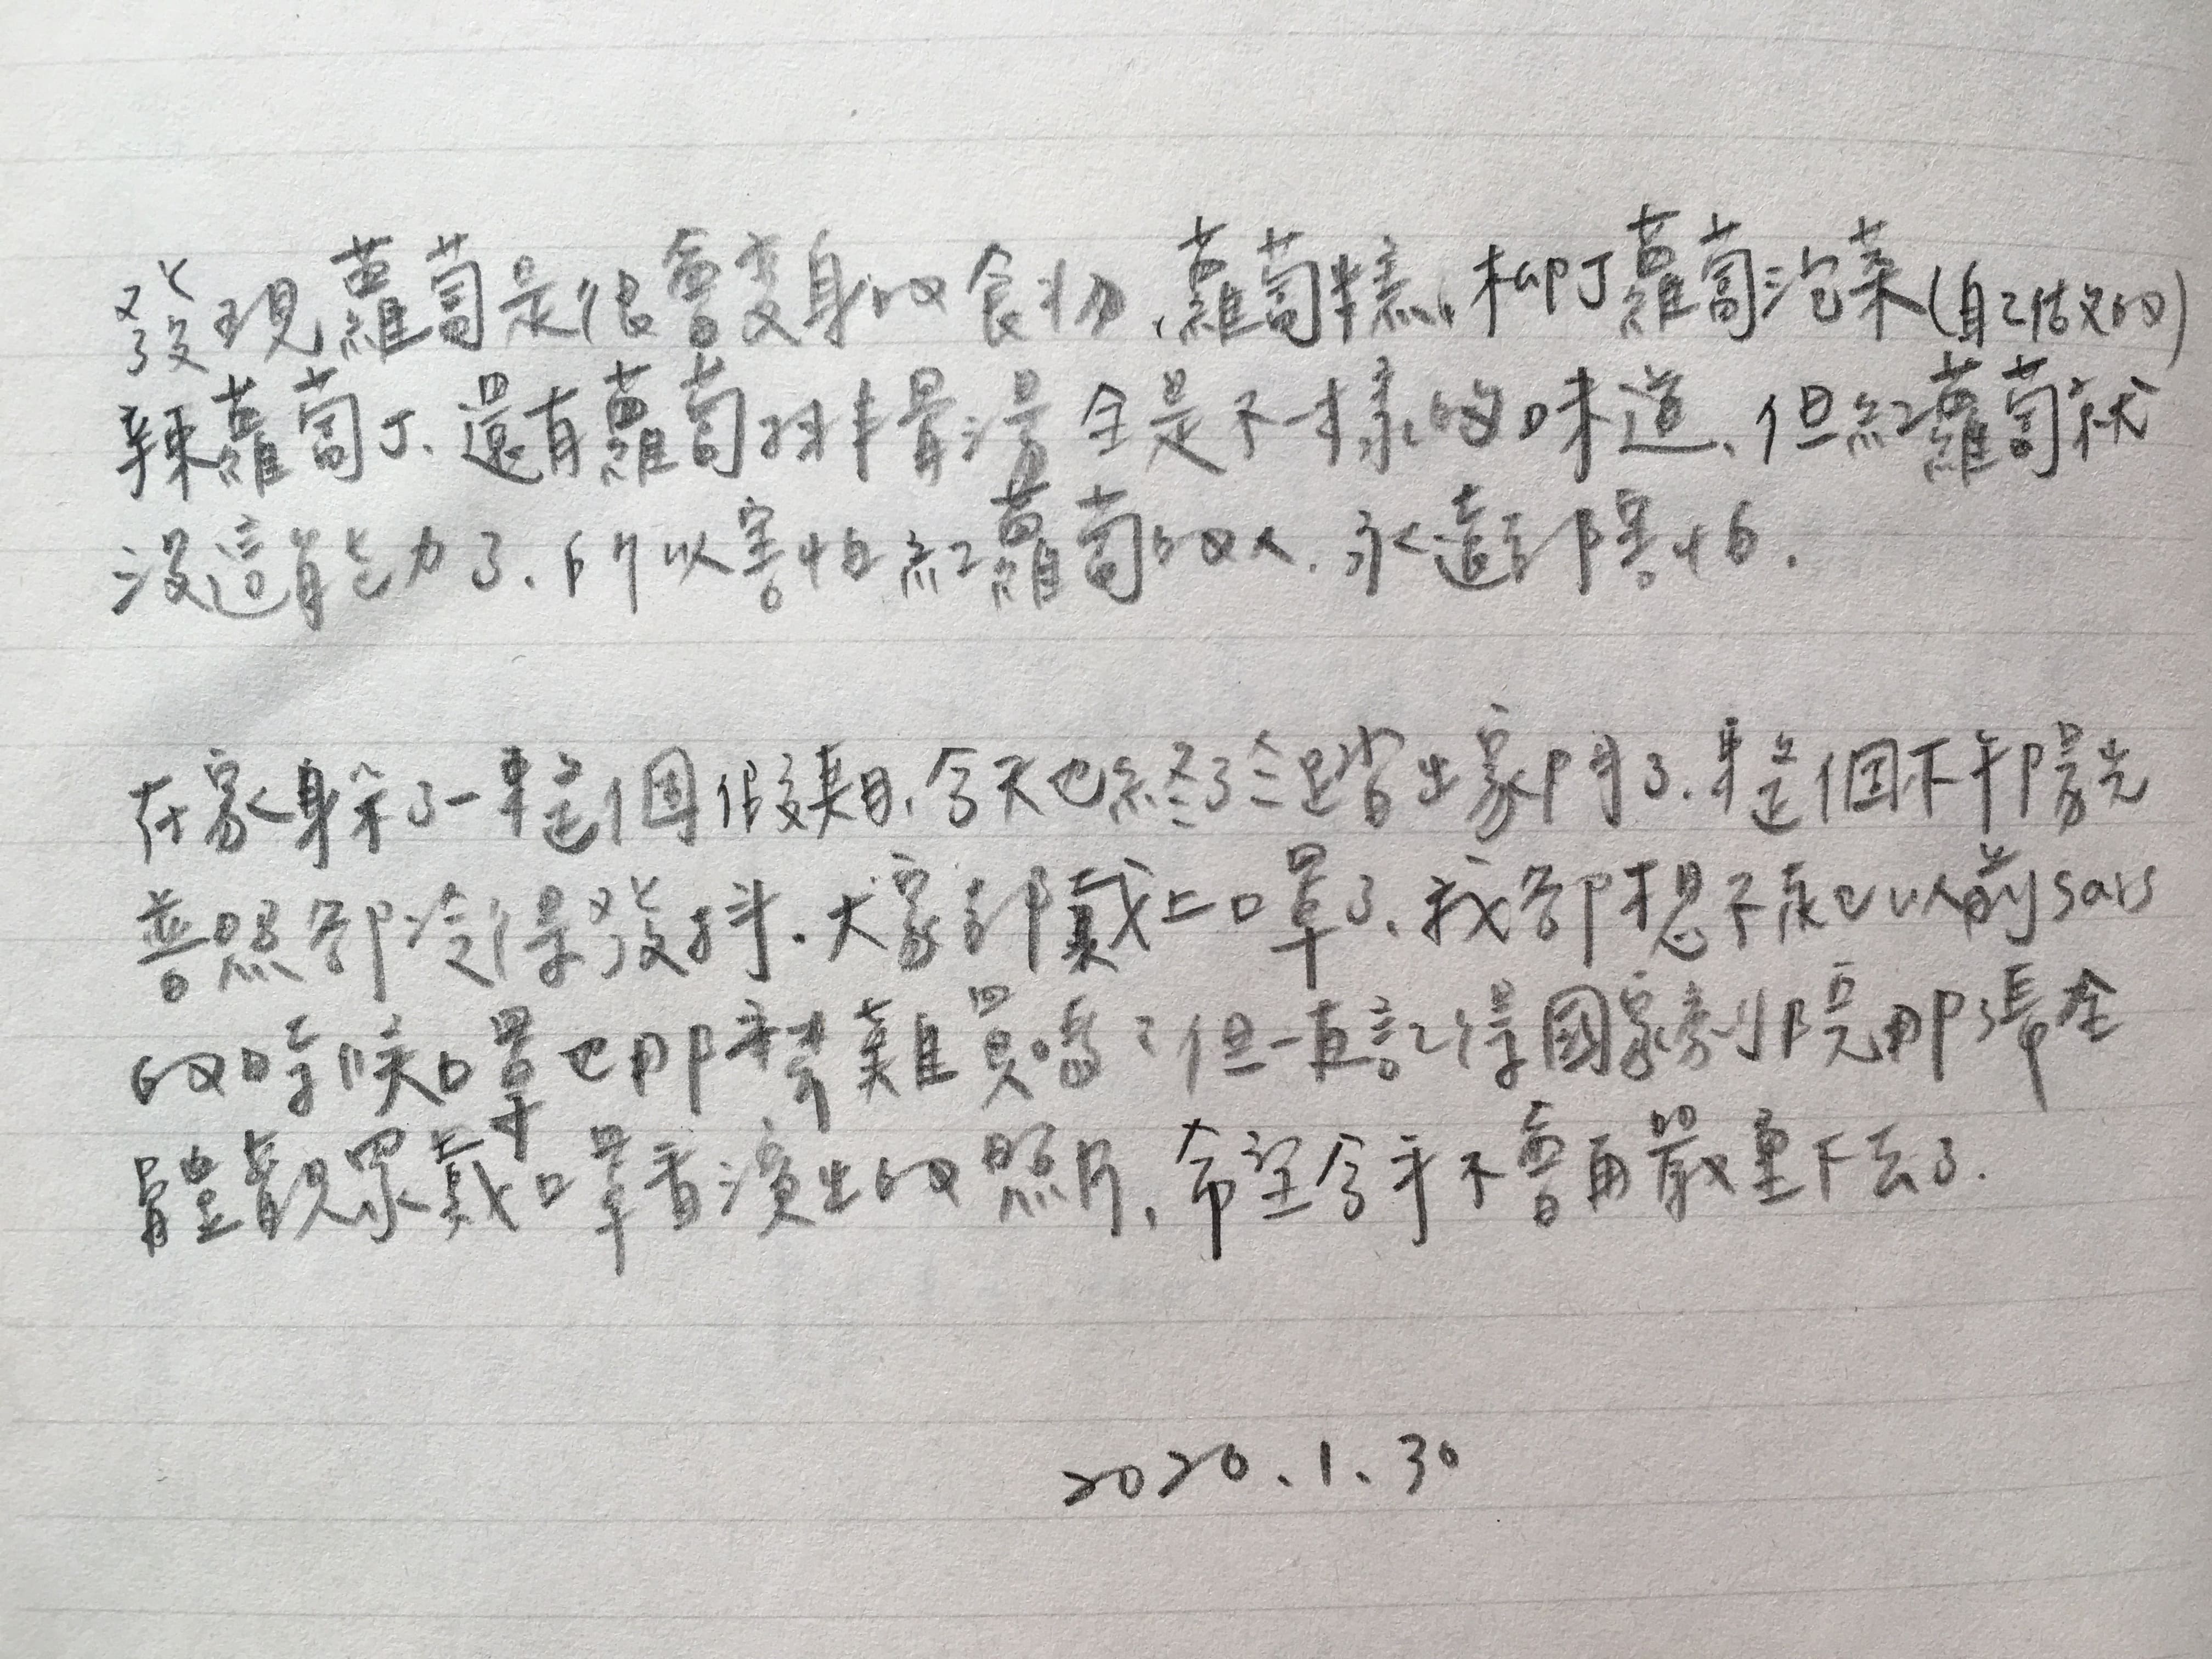 發現蘿蔔是很會變身的食物、蘿蔔糕、柳丁蘿蔔泡菜(自己做的)
辣蘿蔔丁、還有蘿蔔排骨湯全是不一樣的味道、但紅蘿蔔就
沒這能力了、所以害怕紅蘿蔔的人、永遠都害怕.
在家躲了一整個假期、今天也終於踏出家門了、整個下午陽光
普照卻冷得發抖、大家都戴上口罩了、我卻想不起以前sars
的時候口罩也那麼難買嗎?但一直記得國家劇院那張全
體觀眾戴口罩看演出的照片、希望今年不會再嚴重下去了.
2020.1.30